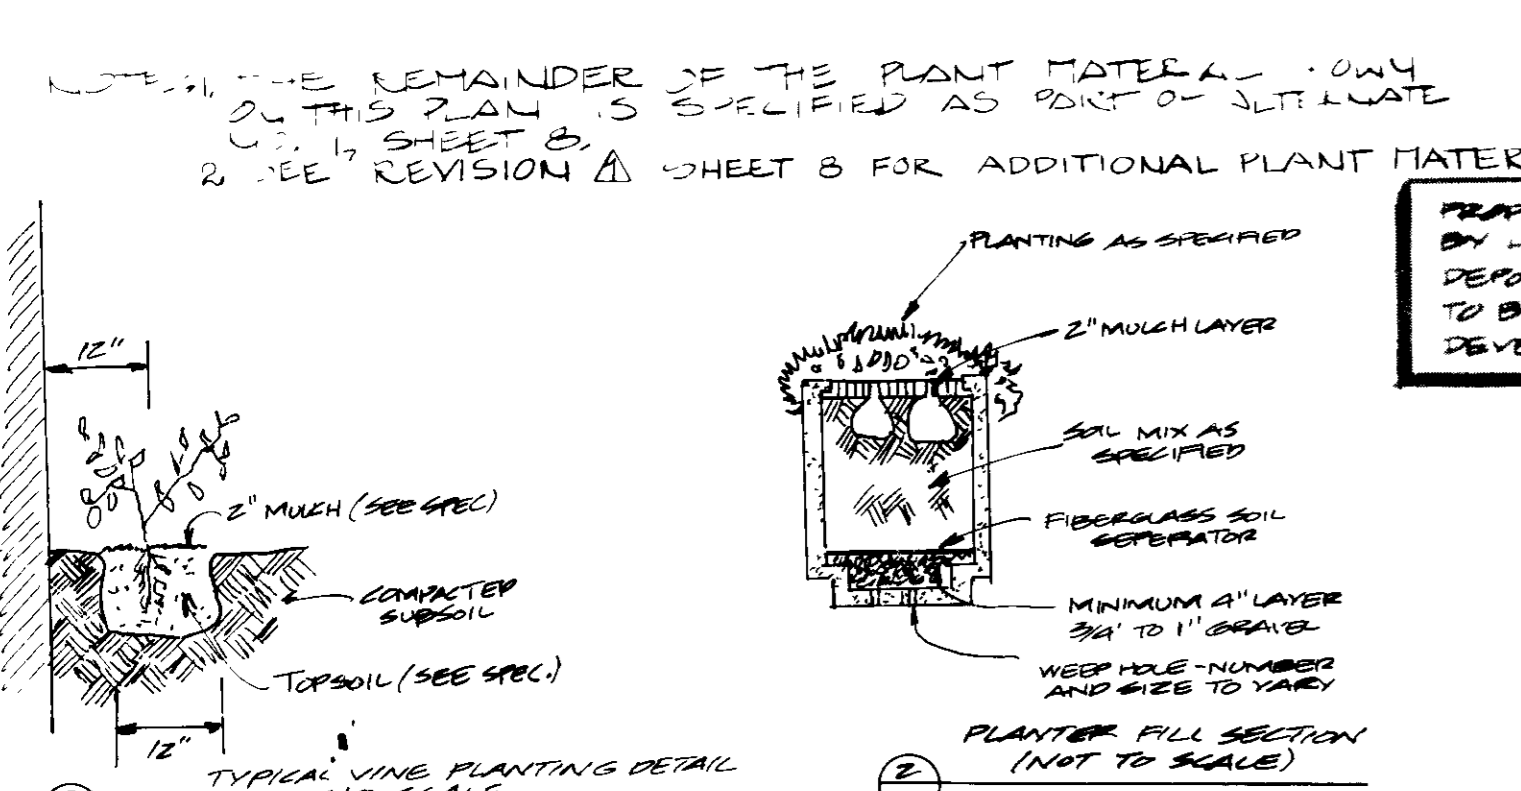 REMAINDER OF THE PLANT
THIS PLAN IS SPECIFIED AS PART OF ALTERNATE
1, SHEET 8.
2 SEE REVISION 1 SHEET 8 FOR ADDITIONAL PLANT MATER
12"
2" MULCH (SEE SPEC)
COMPACTED
SUBSOIL
TOPSOIL (SEE SPEC.)
12"
TYPICAL VINE PLANTING DETAIL
PLANTING AS SPECIFIED
2" MULCH LAYER
SOIL MIX AS
SPECIFIED
FIBERGLASS SOIL
SEPERATOR
MINIMUM 4" LAYER
3/4' TO 1" GRAVEL
WEEP HOLE - NUMBER
AND SIZE TO VARY
PLANTER FILL SECTION
(NOT TO SCALE)
2
PROP
BY
DEPO
TO B
DEVE